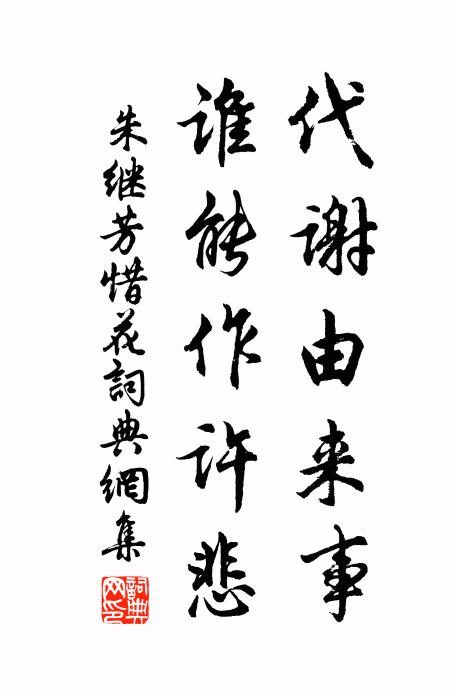 代谢由来事
谁能作许悲
朱继芳惜花詞典網集
詞典网印